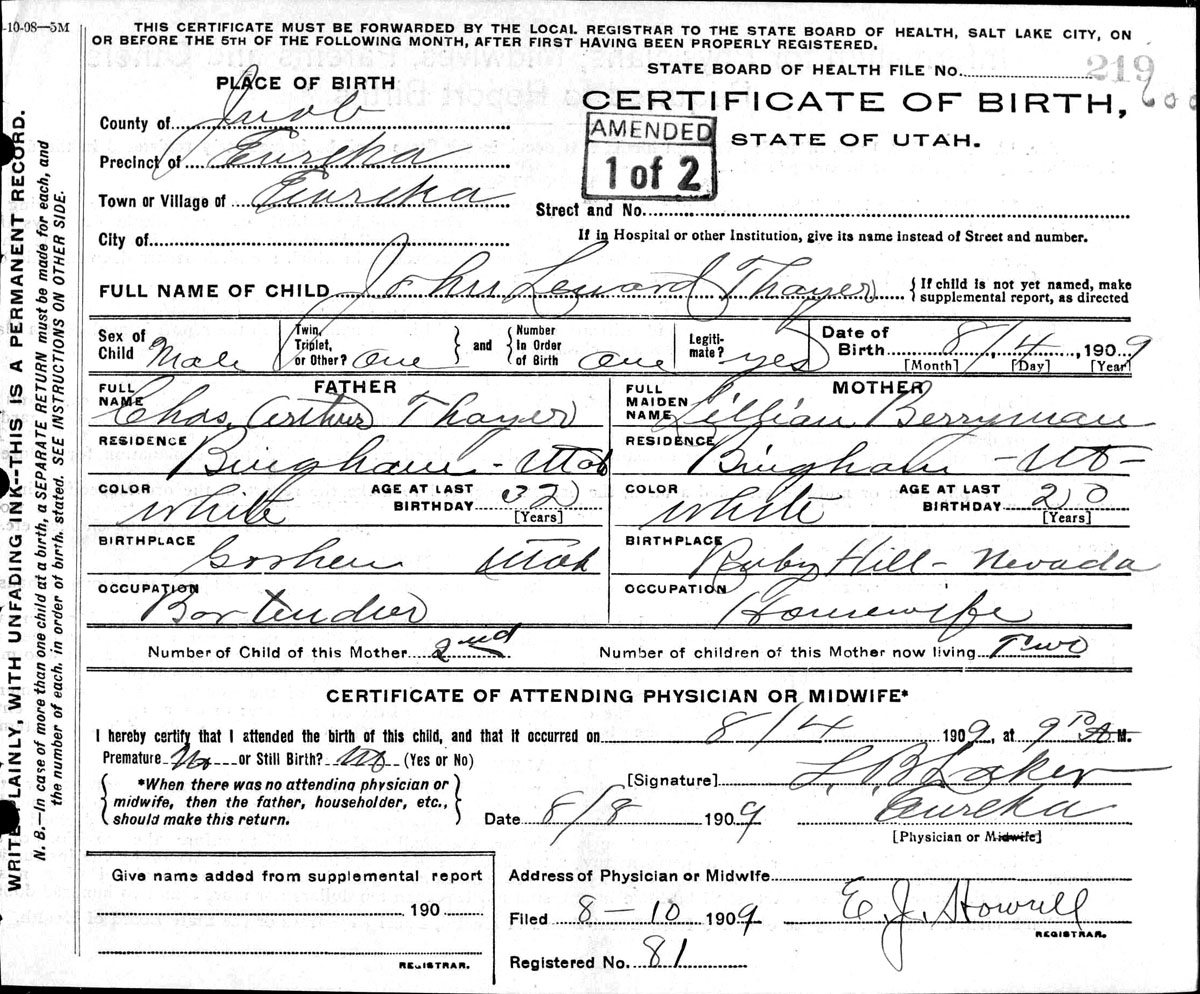 -10-08—5M
THIS CERTIFICATE MUST BE FORWARDED BY THE LOCAL REGISTRAR TO THE STATE BOARD OF HEALTH, SALT LAKE CITY, ON
OR BEFORE THE 5TH OF THE FOLLOWING MONTH, AFTER FIRST HAVING BEEN PROPERLY REGISTERED.
STATE BOARD OF HEALTH FILE No. 219
600
PLACE OF BIRTH
CERTIFICATE OF BIRTH,
STATE OF UTAH.
AMENDED
1 of 2
County of Juab
Precinct of Eureka
Town or Village of Eureka
Street and No.
City of
If in Hospital or other Institution, give its name instead of Street and number.
FULL NAME OF CHILD John Leward Thayer { If child is not yet named, make supplemental report, as directed
Sex of Child Male Twin, Triplet, or Other? One } and { Number In Order of Birth One Legiti-mate? yes Date of Birth 8/4, 1909
[Month] [Day] [Year]
FATHER MOTHER
FULL NAME Chas. Arthur Thayer FULL MAIDEN NAME Lillian Berryman
RESIDENCE Bingham - Utah RESIDENCE Bingham - Ut -
COLOR White AGE AT LAST BIRTHDAY 32 [Years] COLOR White AGE AT LAST BIRTHDAY 20 [Years]
BIRTHPLACE Goshen Utah BIRTHPLACE Ruby Hill - Nevada
OCCUPATION Bartender OCCUPATION Housewife
Number of Child of this Mother 2nd Number of children of this Mother now living Two
CERTIFICATE OF ATTENDING PHYSICIAN OR MIDWIFE*
I hereby certify that I attended the birth of this child, and that it occurred on 8/4 1909, at 9 P M.
Premature No or Still Birth? No (Yes or No)
*When there was no attending physician or
midwife, then the father, householder, etc.,
should make this return.
[Signature] L. B. Laker
Date 8/8 1909 Eureka
[Physician or Midwife]
Give name added from supplemental report
190
REGISTRAR.
Address of Physician or Midwife
Filed 8-10 1909 E. J. Howell
REGISTRAR.
Registered No. 81
WRITE PLAINLY, WITH UNFADING INK--THIS IS A PERMANENT RECORD.
N. B.—In case of more than one child at a birth, a SEPARATE RETURN must be made for each, and
the number of each, in order of birth, stated. SEE INSTRUCTIONS ON OTHER SIDE.